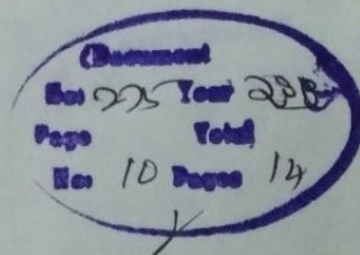 (Document
No: 225 Year
Page Total
No: 10 Pages 14